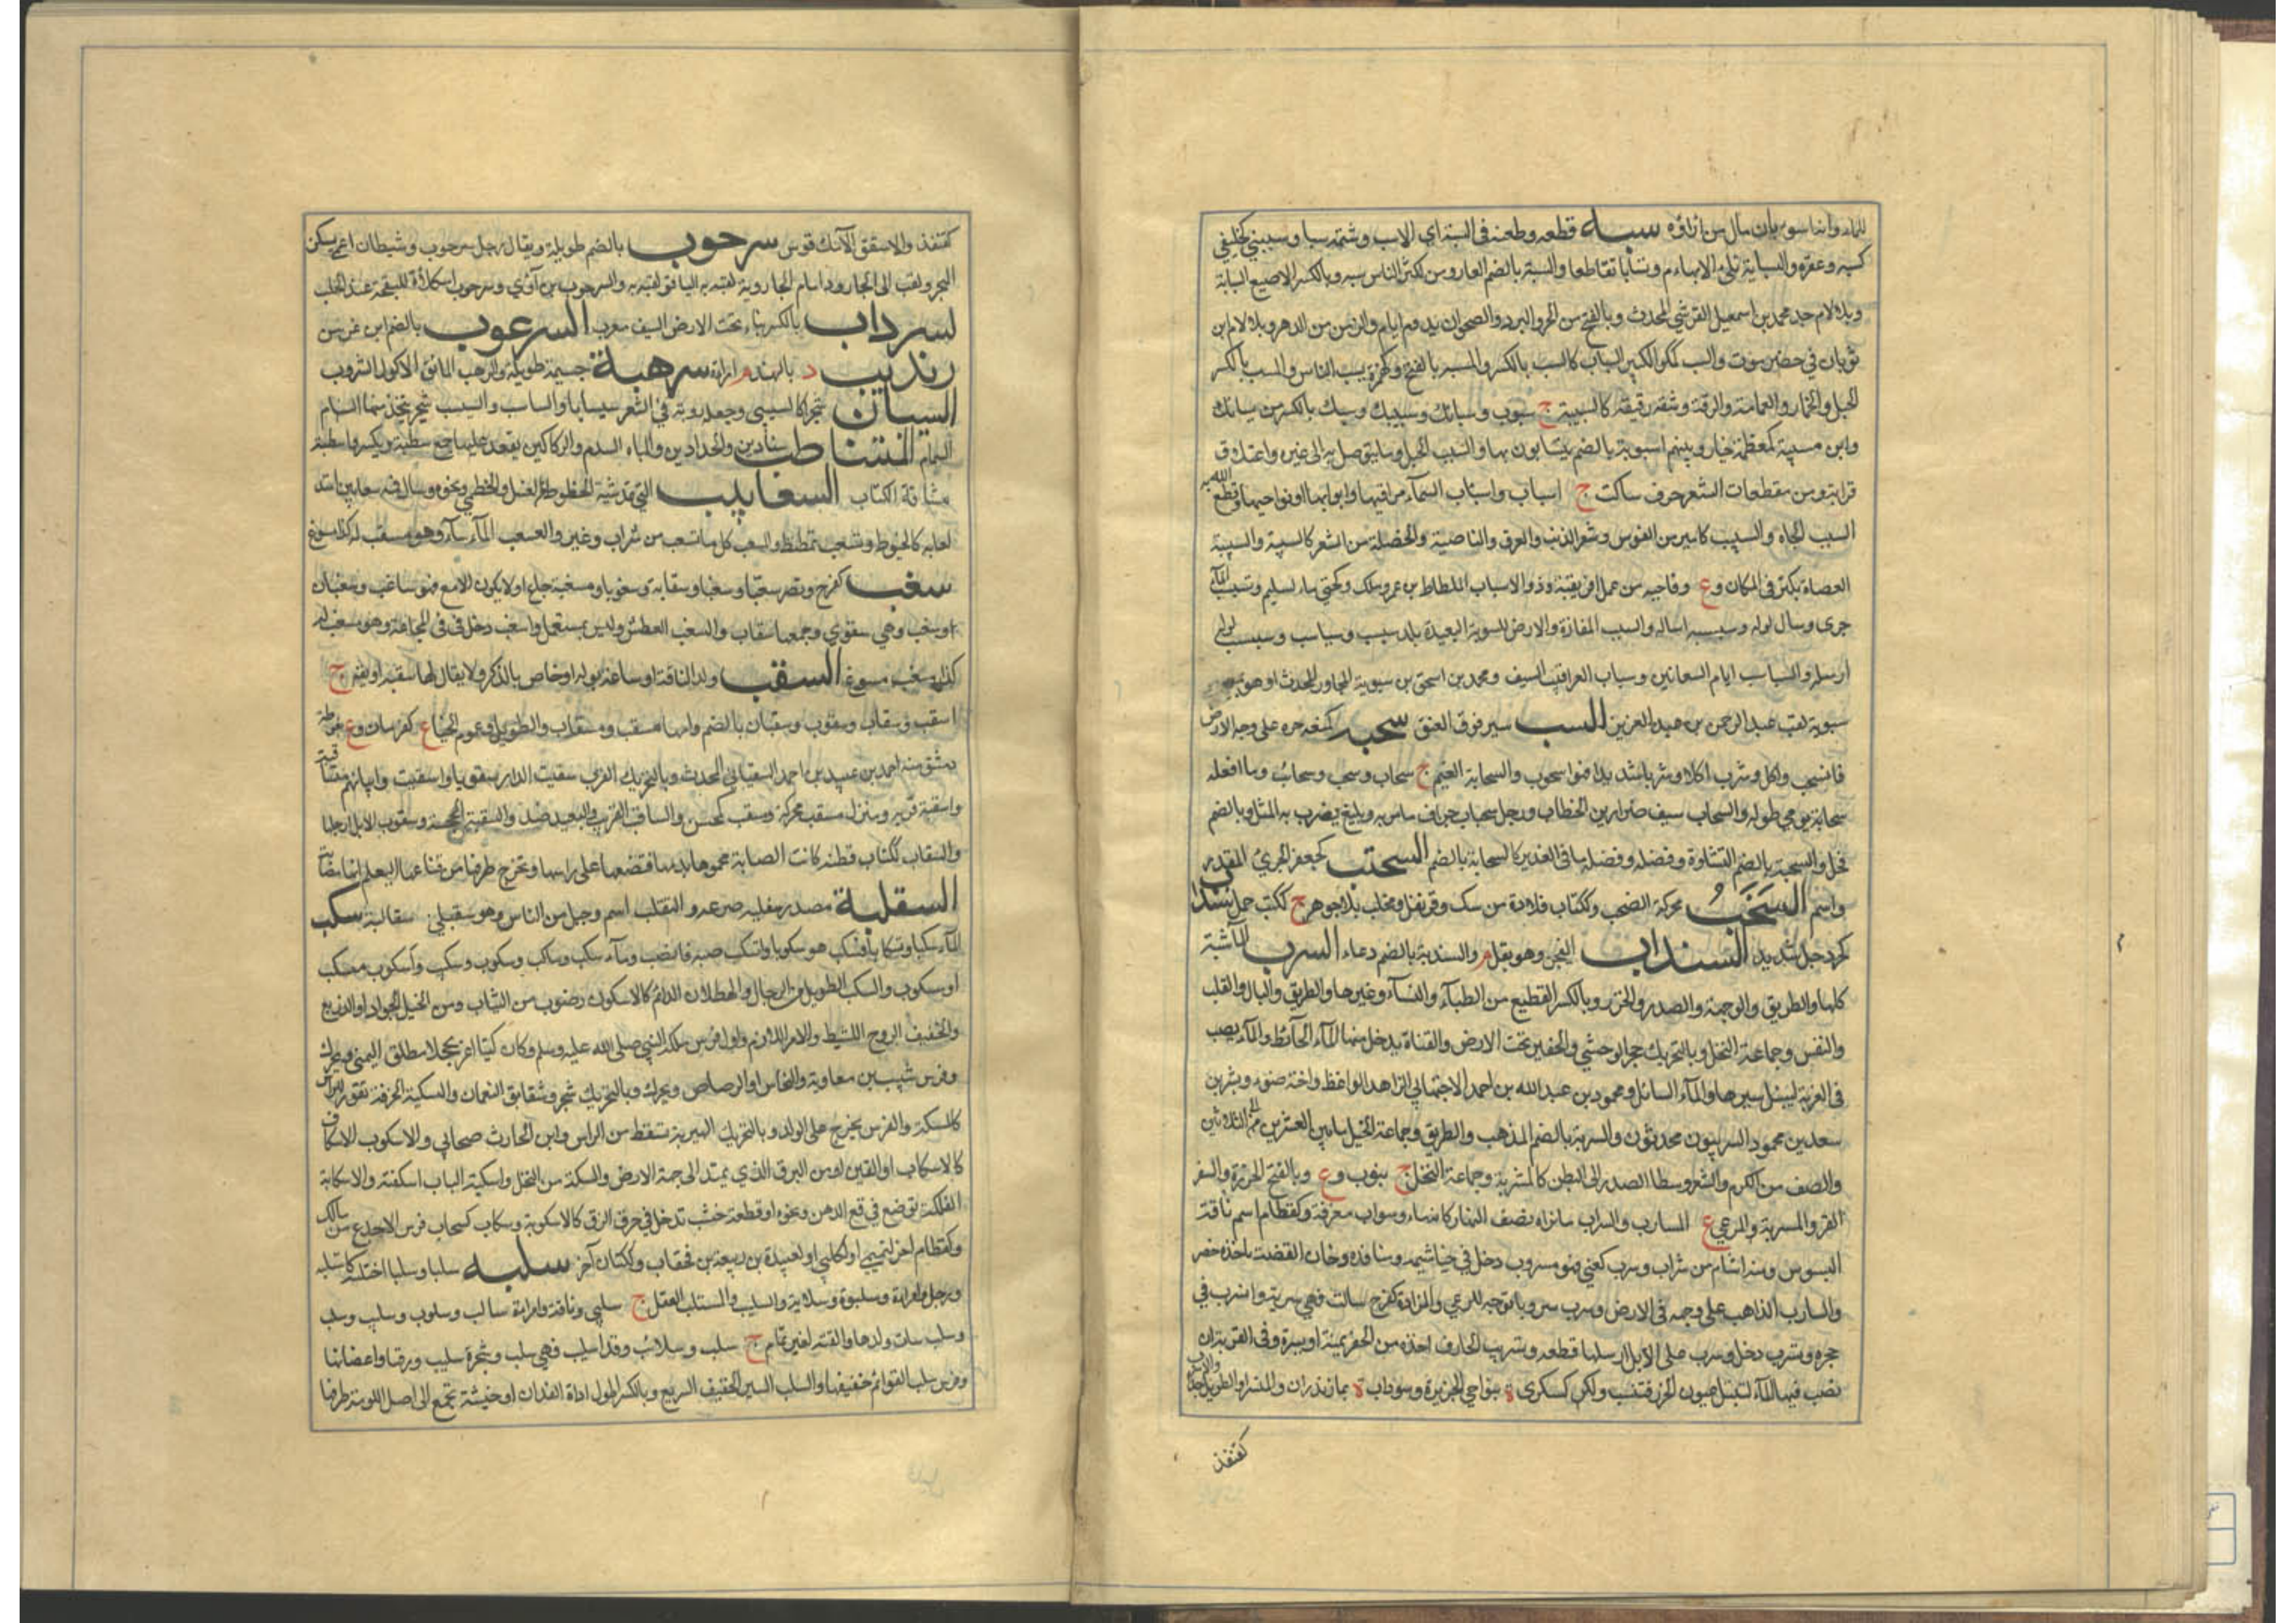 سبه قطعه وطعنه في السبة اي الاست وشتمه سبا وسبيبي كخليفي
والسبابة تلي الابهام وتسابا تقاطعا والسبة بالضم العار ومن يكثر الناس سبه وبالكسر الاصبع السبابة
وبلا لام جد محمد بن اسمعيل القرشي المحدث وبالفتح من الحر والبرد والصحو ان يدوم ايام والزمن من الدهر وبلا لام ابن
ثوبان في حضرموت والسب بالكسر الكثير السباب كالمسب بالكسر والمسبة بالفتح وكهمزة يسب الناس والسب بالكسر
الحبل والخمار والعمامة والوتد وشقة رقيقة كالسبيبة ج سبوب وسبائب وسبيبك وسبك بالكسر من يسابك
وابل مسببة كمعظمة خيار وبينهم اسبوبة بالضم يتسابون بها والسبب الحبل وما يتوصل به الى غيره واعتلاق
قرابة ومن مقطعات الشعر حرف ساكن ج اسباب واسباب السماء مراقيها او نواحيها او ابوابها وقطع الله به
السبب الحياة والسبيب كامير من الفرس شعر الذنب والعرف والناصية والخصلة من الشعر كالسبيبة والسبيبة
العضاه تكثر في المكان وع وناحية من عمل افريقية وذو الاسباب الملطاط بن عمرو ملك وكحتى ماء لسليم وتسبسب الماء
جرى وسال بوله وسبسبه اساله والسبسب المفازة والارض المستوية البعيدة بلد سبسب وسباسب وسبسب بوله
ارسله والسباسب ايام السعانين وسباب العراقيب السيف ومحمد بن اسحق بن سبوية المجاور المحدث او هو بمعجمة
سبوية لقب عبد الرحمن بن عبد العزيز السب سير فوق العنق سحبه كمنعه جره على وجه الارض
فانسحب واكل وشرب اكلا وشربا شديدا فهو اسحوب والسحابة الغيم ج سحاب وسحب وسحائب وما افعله
سحابة يومي طوله والسحاب سيف ضرار بن الخطاب ورجل سحبان جراف ما مر به وبليغ يضرب به المثل وبالضم
فحل والسحبة بالضم الغشاوة وفضلة ماء في الغدير كالسحابة بالضم السحتب كجعفر الجريء المقدم
واسم السخب محركة الصخب وككتاب قلادة من سك وقرنفل ومحلب بلا جوهر ج ككتب جمل سنداب
كجردحل شديد السنداب الفيجن وهو بقل م والسندبة بالضم دعاء السرب الماشية
كلها والطريق والوجهة والصدر والخرز وبالكسر القطيع من الظباء والنساء وغيرها والطريق والبال والقلب
والنفس وجماعة النخل وبالتحريك جحر الوحشي والحفير تحت الارض والقناة يدخل منها الماء الحائط والماء يصب
في القربة ليبتل سيرها والماء السائل ومحمود بن عبد الله بن احمد الاصبهاني الزاهد الواعظ واخته ضوء ومبشر بن
سعد بن محمود السربيون محدثون والسربة بالضم المذهب والطريق وجماعة الخيل ما بين العشرين الى الثلاثين
والصف من الكرم والشعر وسط الصدر الى البطن كالمسربة وجماعة النخل ج سروب وع وبالفتح الخرزة والسفر
القريب والمسربة المرعى ج المسارب والسراب ما تراه نصف النهار كانه ماء وسراب معرفة وكقطام اسم ناقة
البسوس وسرب كعني فهو مسروب دخل في خياشيمه ومنافذه دخان الفضة فاخذه حصر
والسارب الذاهب على وجهه في الارض وسرب سروبا توجه للرعي والمزادة كفرح سالت فهي سربة وانسرب في
جحره وتسرب دخل وسرب علي الابل ارسلها قطعة وتسريب الحافر اخذه في الحفر يمنة ويسرة وفي القربة ان
تصب فيها الماء لتبتل عيون الخرز فتنسد ة بنواحي الجزيرة وسوراب ة بمازندران
كقنفذ
كقنفذ والاسقف الآنك قوس سرحوب بالضم طويلة ويقال رجل سرحوب وشيطان اعمى يسكن
البحر ولقب ابي الجارود امام الجارودية لقبه به الباقر والسرحوب ابن آوى وسرحوب اشلاء للنعجة عند الحلب
السرداب بالكسر بناء تحت الارض للصيف معرب السرعوب بالضم ابن عرس
رنديب د بالهند م امراة سرهبة جسيمة طويلة والسرهب المائق الاكول الشروب
السيسبان شجر كالسيسبى وجعله رؤبة في الشعر سيسابا والساسب والسيسب شجر يتخذ منها السهام
المساطب سنادين الحدادين والمياه السدم والدكاكين يقعد عليها جمع مسطبة ويكسر والاسطبة
مشاقة الكتان السعابيب التي تمتد شبه الخيوط من العسل والخطمي ونحوه وسال فمه سعابيب امتد
لعابه كالخيوط وتسعب تمطط والسعب كل ما تسعب من شراب وغيره وانسعب الماء سال وهو مسعب له كذا مسوغ
سغب كفرح ونصر سغبا وسغبا وسغابة وسغوبا ومسغبة جاع او لا يكون الا مع تعب فهو ساغب وسغبان
وسغب وهي سغبى وجمعها سغاب والسغب العطش وليس بمستعمل واسغب دخل في المجاعة وهو مسغب له
كذا ومسغب مسوغ السقب ولد الناقة او ساعة يولد او خاص بالذكر ولا يقال لها سقبة او يقال ج
اسقب وسقاب وسقوب وسقبان بالضم وامها مسقب ومسقاب والطويل وعمود الخباء ج كغربان وع بغوطة
دمشق منه احمد بن عبيد بن احمد السقباني المحدث وبالتحريك القرب سقبت الدار سقوبا واسقبت وابياتهم متساقبة
واسقبه قربه ومنزل سقب محركة ومسقب كمحسن والساقب القريب والبعيد ضد والسقبة الجحشة وسقوب الابل ارجلها
والسقاب ككتاب قطنة كانت المصابة تحمرها بدمها فتضعها على راسها وتخرج طرفها من قناعها ليعلم انها مصابة
السقلبة مصدر سقلبه صرعه والسقلب اسم وجيل من الناس وهو سقلبي سقالبة سكب
الماء سكبا وتسكابا فسكب هو سكوبا وانسكب صبه فانصب وماء سكب وساكب وسكوب وسيكب واسكوب منسكب
او مسكوب والسكب الطويل من الرجال والهطلان الدائم كالاسكوب وضرب من الثياب ومن الخيل الجواد او الذريع
والخفيف الروح النشيط والامر اللازم واول فرس ملكه النبي صلى الله عليه وسلم وكان كميتا اغر محجلا مطلق اليمنى ويحرك
وفرس شبيب بن معاوية والنحاس او الرصاص ويحرك وبالتحريك شجر وشقائق النعمان والسكبة الخرقة تقور للراس
كالشبكة والغرس يخرج على الولد وبالتحريك الهبرية تسقط من الراس وابن الحارث صحابي والاسكوب الاسكاف
كالاسكاب او القين ومن البرق الذي يمتد الى جهة الارض والسكة من النخل واسكبة الباب اسكفته والاسكابة
الفلكة توضع في قمع الدهن ونحوه او قطعة خشب تدخل في خرق الزق كالاسكوبة وسكاب كسحاب فرس الاجدع بن مالك
وكقطام آخر لتميمي او لكلبي او لعبيدة بن ربيعة بن قحفان وككتان آخر سلبه سلبا وسلبا اختلسه كاستلبه
ورجل وامراة وسلبوت وسلابة والسليب المستلب العقل ج سلبى وناقة وامراة سالب وسلوب وسليب وسلب
وسلب مات ولدها او القته لغير تمام ج سلب وسلائب وقد اسلبت فهي مسلب وشجرة سليب سلبت ورقها واغصانها
وفرس سلب القوائم خفيفها والسلب السير الخفيف السريع وبالكسر اطول اداة الفدان او خشبة تجمع الى اصل اللومة طرفها